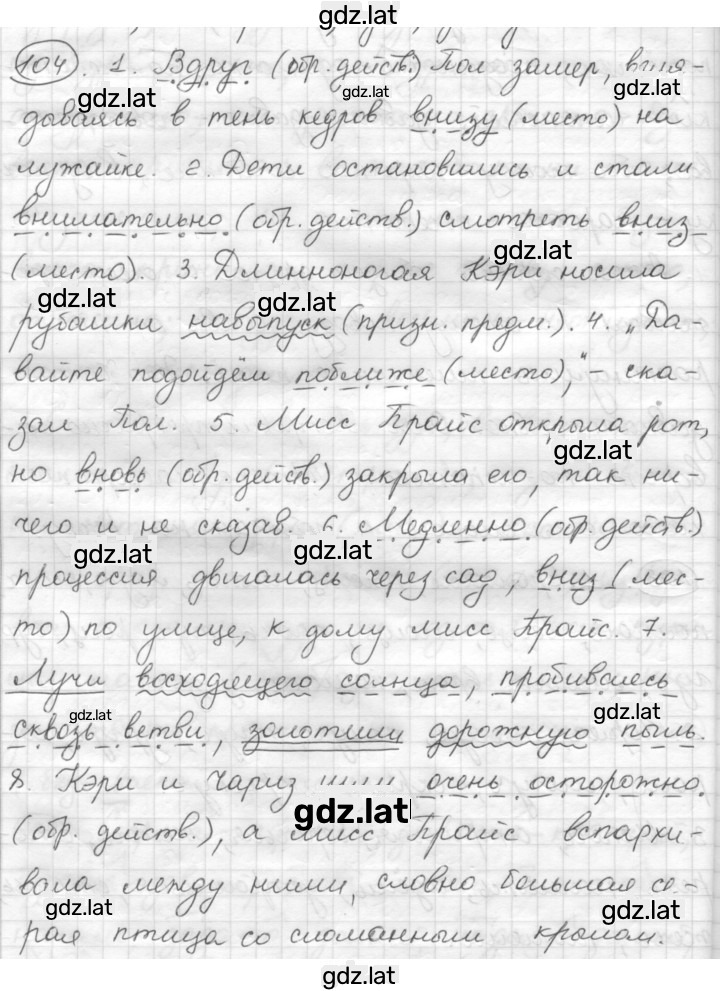 gdz.lat
104. 1. Вдруг (обр. действ.) Пол замер, вгля-
gdz.lat gdz.lat gdz.lat
дываясь в тень кедров внизу (место) на
лужайке. 2. Дети остановились и стали
внимательно (обр. действ.) смотреть вниз
gdz.lat
(место). 3. Длинноногая Кэри носила
gdz.lat gdz.lat
рубашки навыпуск (призн. предм.). 4. „Да-
вайте подойдём поближе (место)," - ска-
зал Пол. 5. Мисс Прайс открыла рот,
gdz.lat
но вновь (обр. действ.) закрыла его, так ни-
чего и не сказав. 6. Медленно (обр. действ.)
gdz.lat gdz.lat
процессия двигалась через сад, вниз (мес-
то) по улице, к дому мисс Прайс. 7.
Лучи восходящего солнца, пробиваясь
gdz.lat gdz.lat
сквозь ветви, золотили дорожную пыль.
8. Кэри и Чарлз шли очень осторожно
gdz.lat
(обр. действ.), а мисс Прайс вспархи-
вала между ними, словно большая се-
gdz.lat gdz.lat
рая птица со сломанным крылом.
gdz.lat